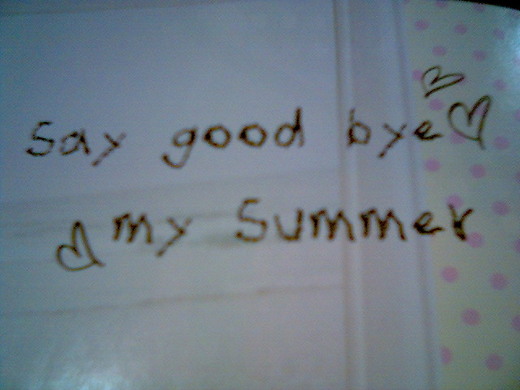 Say good bye
my Summer